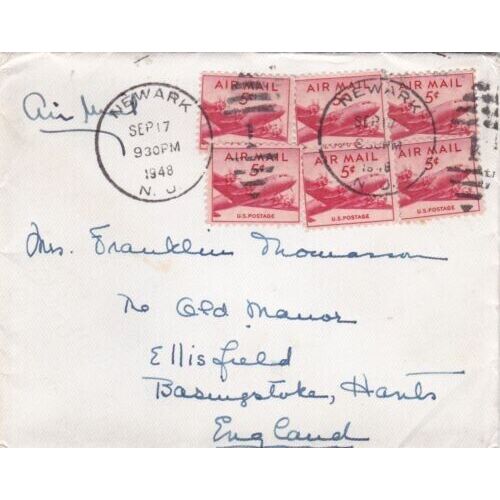 Air Mail
NEWARK
SEP 17
930PM
1948
N. J.
AIR MAIL
5¢
AIR MAIL
5¢
AIR MAIL
5¢
NEWARK
SEP 17
930PM
1948
N. J.
AIR MAIL
5¢
U.S. POSTAGE
AIR MAIL
5¢
U.S. POSTAGE
AIR MAIL
5¢
U.S. POSTAGE
Mrs. Franklin Thomasson
The Old Manor
Ellisfield
Basingstoke, Hants
England